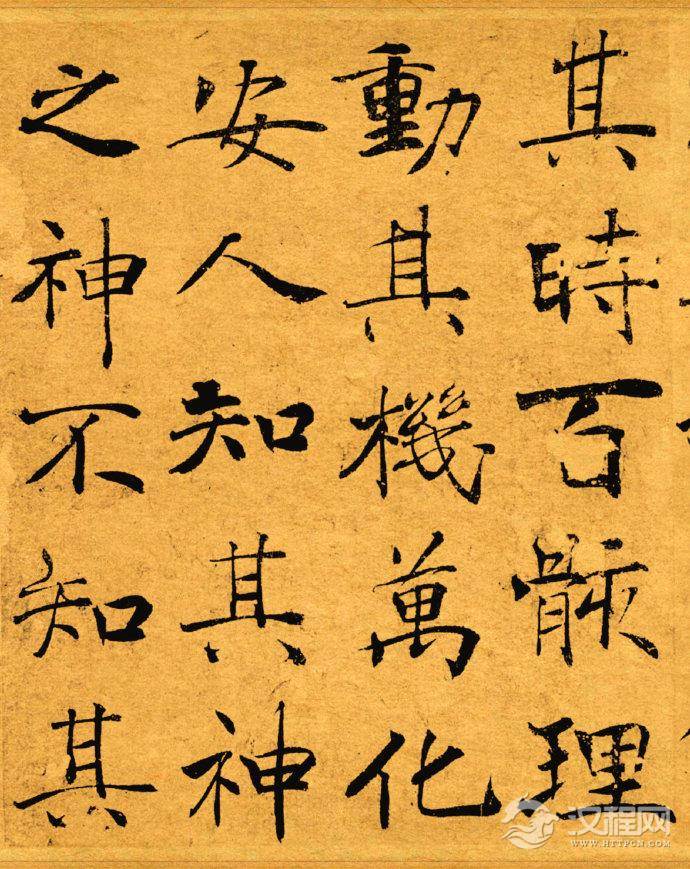 其時百骸理
動其機萬化
安人知其神
之神不知其
汉程网
WWW.HTTPCN.COM